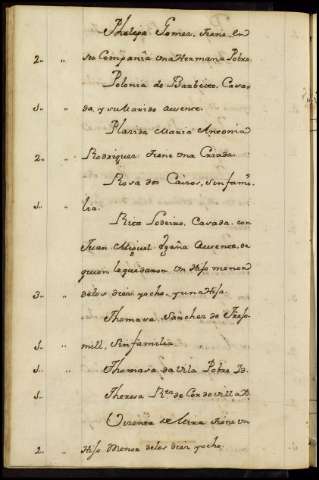 Phelipa Gomez, tiene en
2.. " su Compañia una Hermana Pobre.
Polonia de Barbeito, Casa
1.. " da, y su Marido ausente.
Plazida Maria Antonia
2.. " Rodriguez tiene una Criada.
Rosa dos Cairos, sin fami
1.. " lia.
Rita Lodeiro, Casada con
Juan Miguel Ausente, de
quien le quedaron un Hijo menor
3.. " de los diez yocho, y una Hija.
Thomasa Sanchez de
1.. " mill, sin familia
1.. " Thomasa da Vila Pobre Id.
1.. " Theresa Rs. de
de Neira tiene un
2.. " Hijo Menor de los diez yocho.